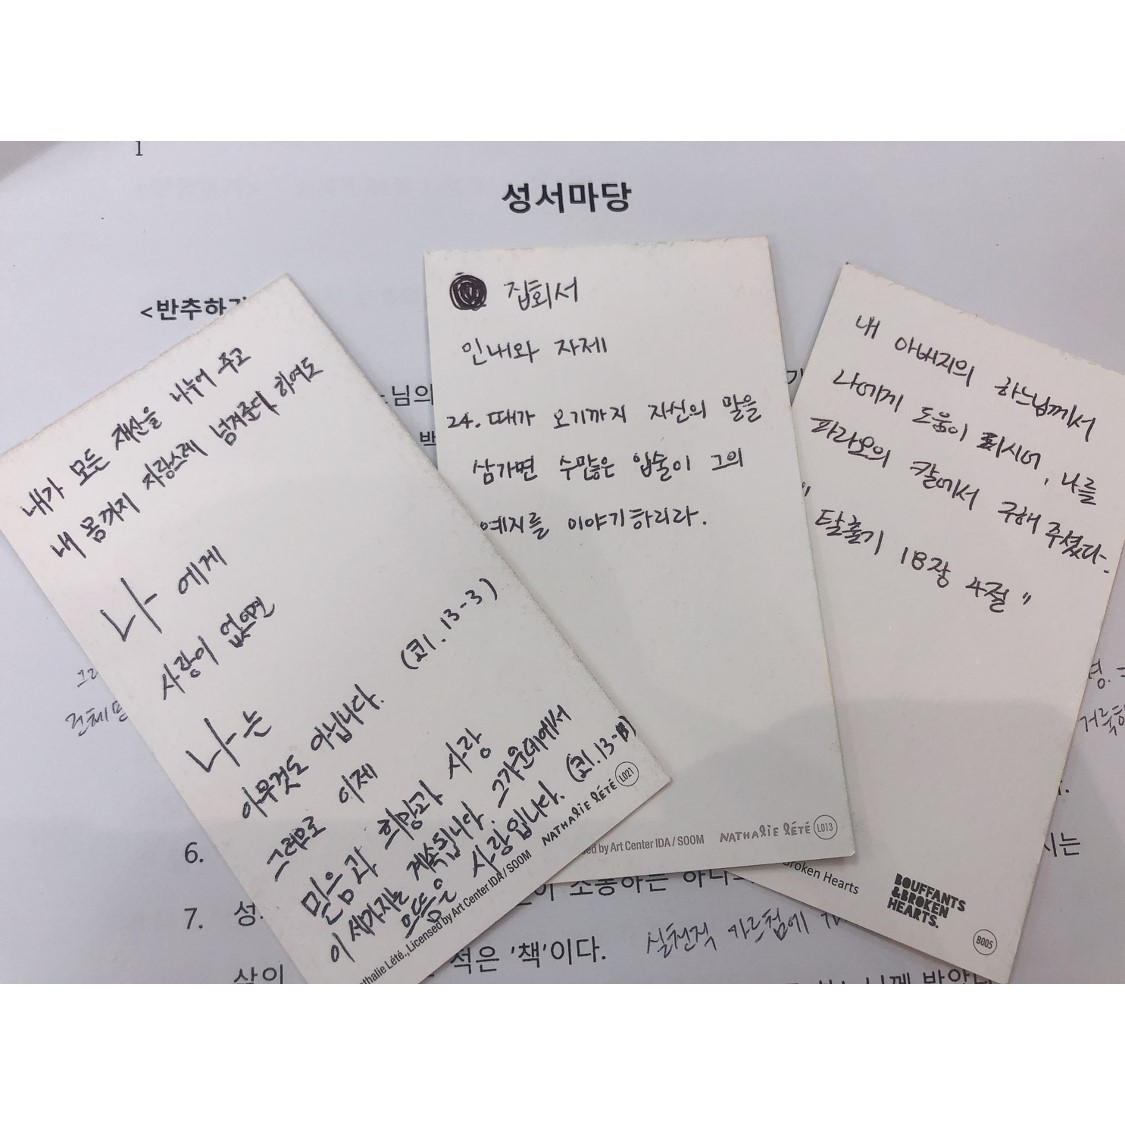 1
성서마당
<반추하기
내가 모든 재산을 나누어 주고
내 몸까지 자랑스레 넘겨준다 하여도
나에게
사랑이 없으면
나는
아무것도 아닙니다. (코1. 13-3)
그러므로 이제
믿음과 희망과 사랑
이 세가지는 계속됩니다. 그가운데에서
으뜸은 사랑입니다. (코1. 13-13)
Nathalie Lété., Licensed by Art Center IDA / SOOM NATHALIE LÉTÉ L021
집회서
인내와 자제
24. 때가 오기까지 자신의 말을
삼가면 수많은 입술이 그의
예지를 이야기하리라.
by Art Center IDA / SOOM NATHALIE LÉTÉ L013
내 아버지의 하느님께서
나에게 도움이 되시어, 나를
파라오의 칼에서 구해 주셨다.
"탈출기 18장 4절"
Broken Hearts
BOUFFANTS
&BROKEN
HEARTS.
B005
님의
6.
시는
7. 성
적은 '책'이다. 실천적 가르침에
삶의